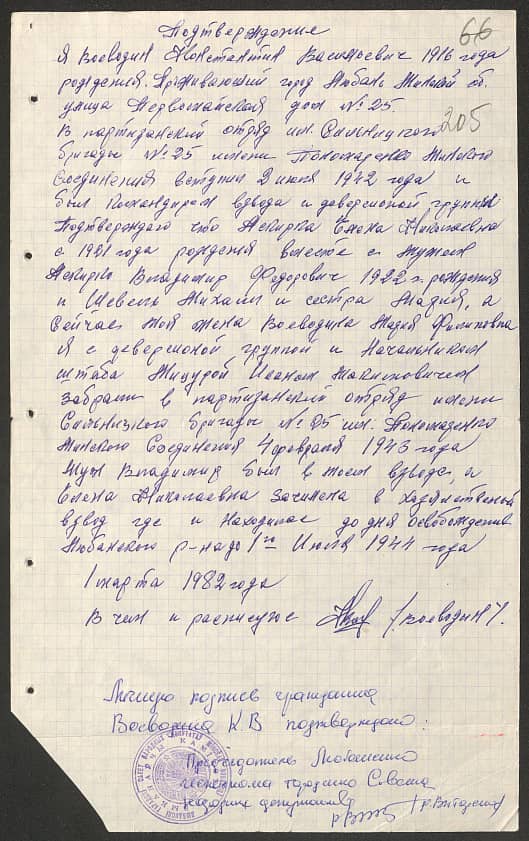 66
Подтверждение
Я Воеводин Константин Васильевич 1916 года
рождения. Проживающий город Любань Минской об.
улица Первомайская дом № 25.
205
В партизанский отряд им. Сильницкого
бригады № 25 имени Пономаренко Минского
Соединения вступил 2 июня 1942 года и
был командиром взвода и диверсионой группы
Подтверждаю что Аскирко Елена Николаевна
с 1921 года рождения вместе с мужем
Владимир Федорович 1922 г. рождения
и Шевель Михаил и сестра Надия, а
сейчас моя жена Воеводина Надия Филиповна
я с диверсионой группой и Начальником
штаба Мицурой Иваном
забрали в партизанский отряд имени
Сильницкого бригады № 25 им. Пономаренко
Минского Соединения 4 февраля 1943 года
Муж Владимир был в моем взводе, а
Елена Николаевна зачислена в хозяйственый
взвод где и находилас до дня освобождения
Любанского р-на до 1го Июля 1944 года
1 марта 1982 года
В чем и расписуюс /Воеводин/.
Личную подпись гражданина
Воеводина К.В подтверждаю:
Председатель Любанского
исполкома городского Совета
народных депутатов